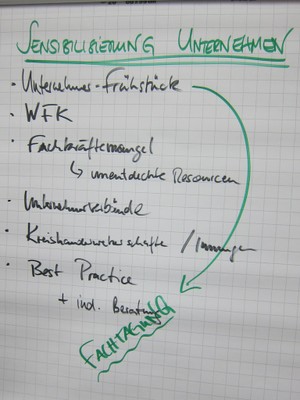 SENSIBILISIERUNG UNTERNEHMEN
· Unternehmer-Frühstücke
· WFK
· Fachkräftemangel
↳ unentdeckte Resourcen
· Unternehmerverbände
· Kreishandwerkerschafte /Innungen
· Best Practice
+ ind. Beratung
FACHTAGUNG